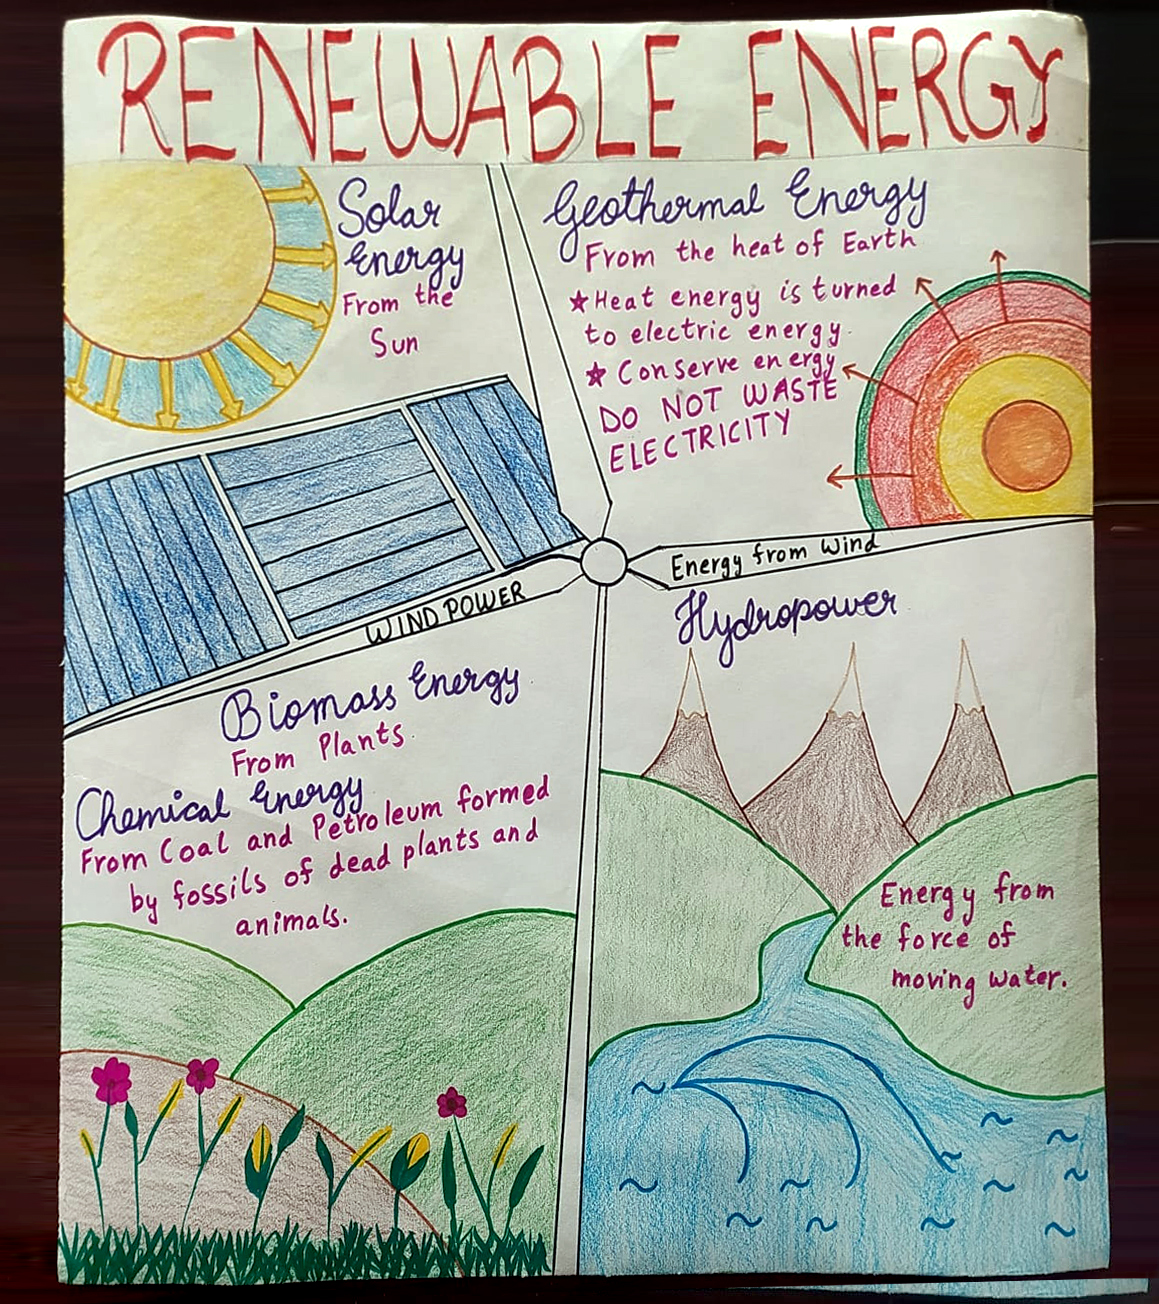 RENEWABLE ENERGY
Solar
Energy
From the
Sun
Geothermal Energy
From the heat of Earth
★ Heat energy is turned
to electric energy.
★ Conserve energy
DO NOT WASTE
ELECTRICITY
WIND POWER
Energy from Wind
Biomass Energy
From Plants
Chemical Energy
From Coal and Petroleum formed
by fossils of dead plants and
animals.
Hydropower
Energy from
the force of
moving water.